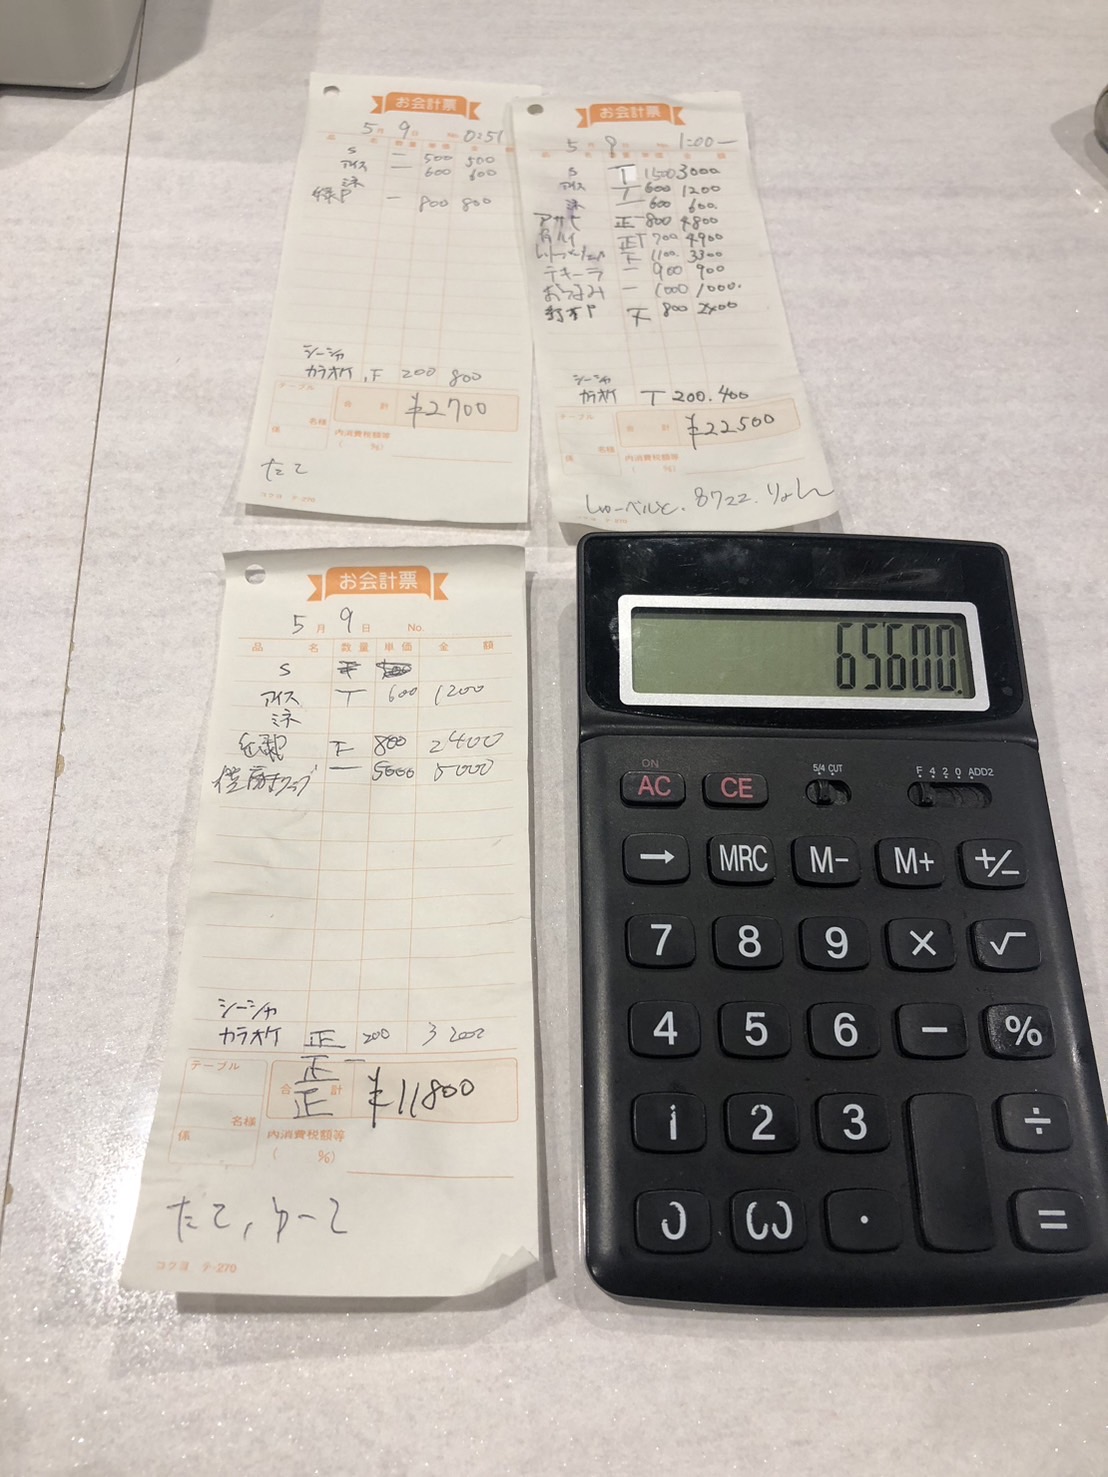 お会計票
5月 9日 No. 0:51
品 名 数量 単価 金 額
S 一 500 500
アイス 一 600 600
ミネ
緑P 一 800 800
シーシャ
カラオケ 200 800
テーブル
合 計 ¥2700
名様
係
内消費税額等
( %)
たて
コクヨ テ-270
お会計票
5月 9日 No. 1:00―
品 名 数量 単価 金 額
S T 1500 3000
アイス T 600 1200
ミネ 一 600 600.
アサヒ 正一 800 4800
正T 700 4900
下 1100. 3300
テキーラ 一 900 900
おつまみ 一 1000 1000.
下 800 2400
シーシャ
カラオケ T 200. 400
テーブル
合 計 ¥22500
名様
係
内消費税額等
( %)
8722.
コクヨ テ-270
お会計票
5月 9日 No.
品 名 数量 単価 金 額
S
アイス T 600 1200
ミネ
下 800 2400
一 5000 5000
シーシャ
カラオケ 正正正一 200 3200
テーブル
合 計 ¥11800
名様
係
内消費税額等
( %)
たて,
コクヨ テ-270
65'600.
ON
AC CE 5/4 CUT F 4 2 0 ADD2
→ MRC M- M+ +/-
7 8 9 × √
4 5 6 - %
1 2 3 ÷
. =